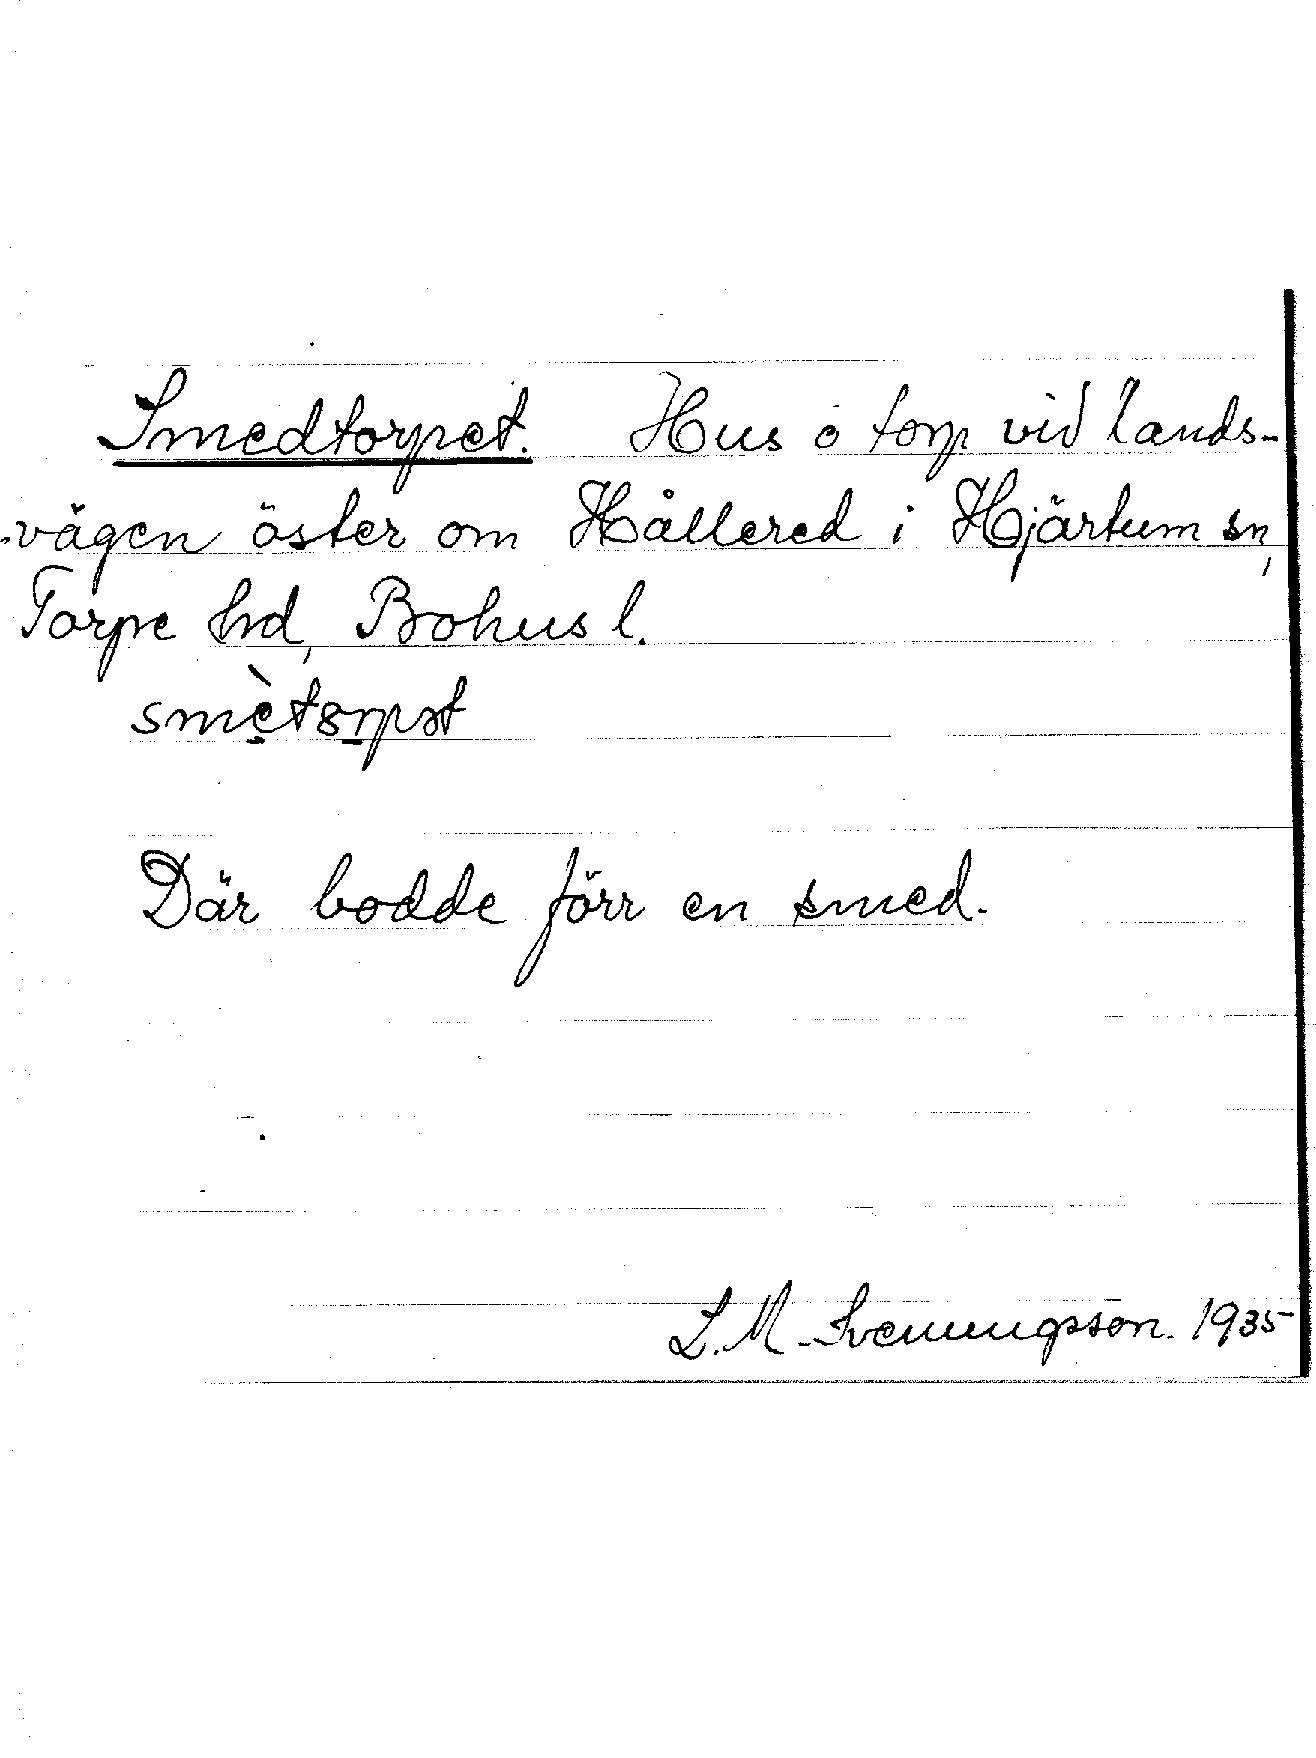 Smedtorpet. Hus o torp vid lands-
vägen öster om Hållered i Hjärtum sn,
Torpe hd, Bohus l.
Där bodde förr en smed.
L. M. Svenungsson. 1935